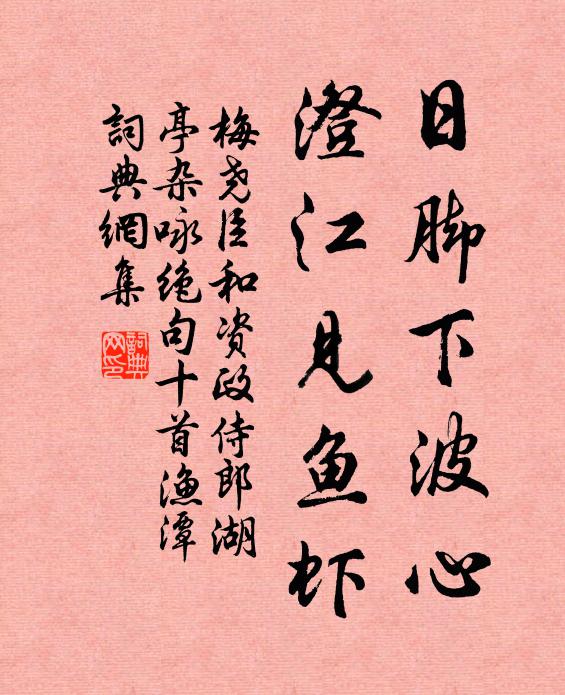 日脚下波心
澄江见鱼虾
梅尧臣和资政侍郎湖
亭杂咏绝句十首渔潭
詞典網集
詞典
网印